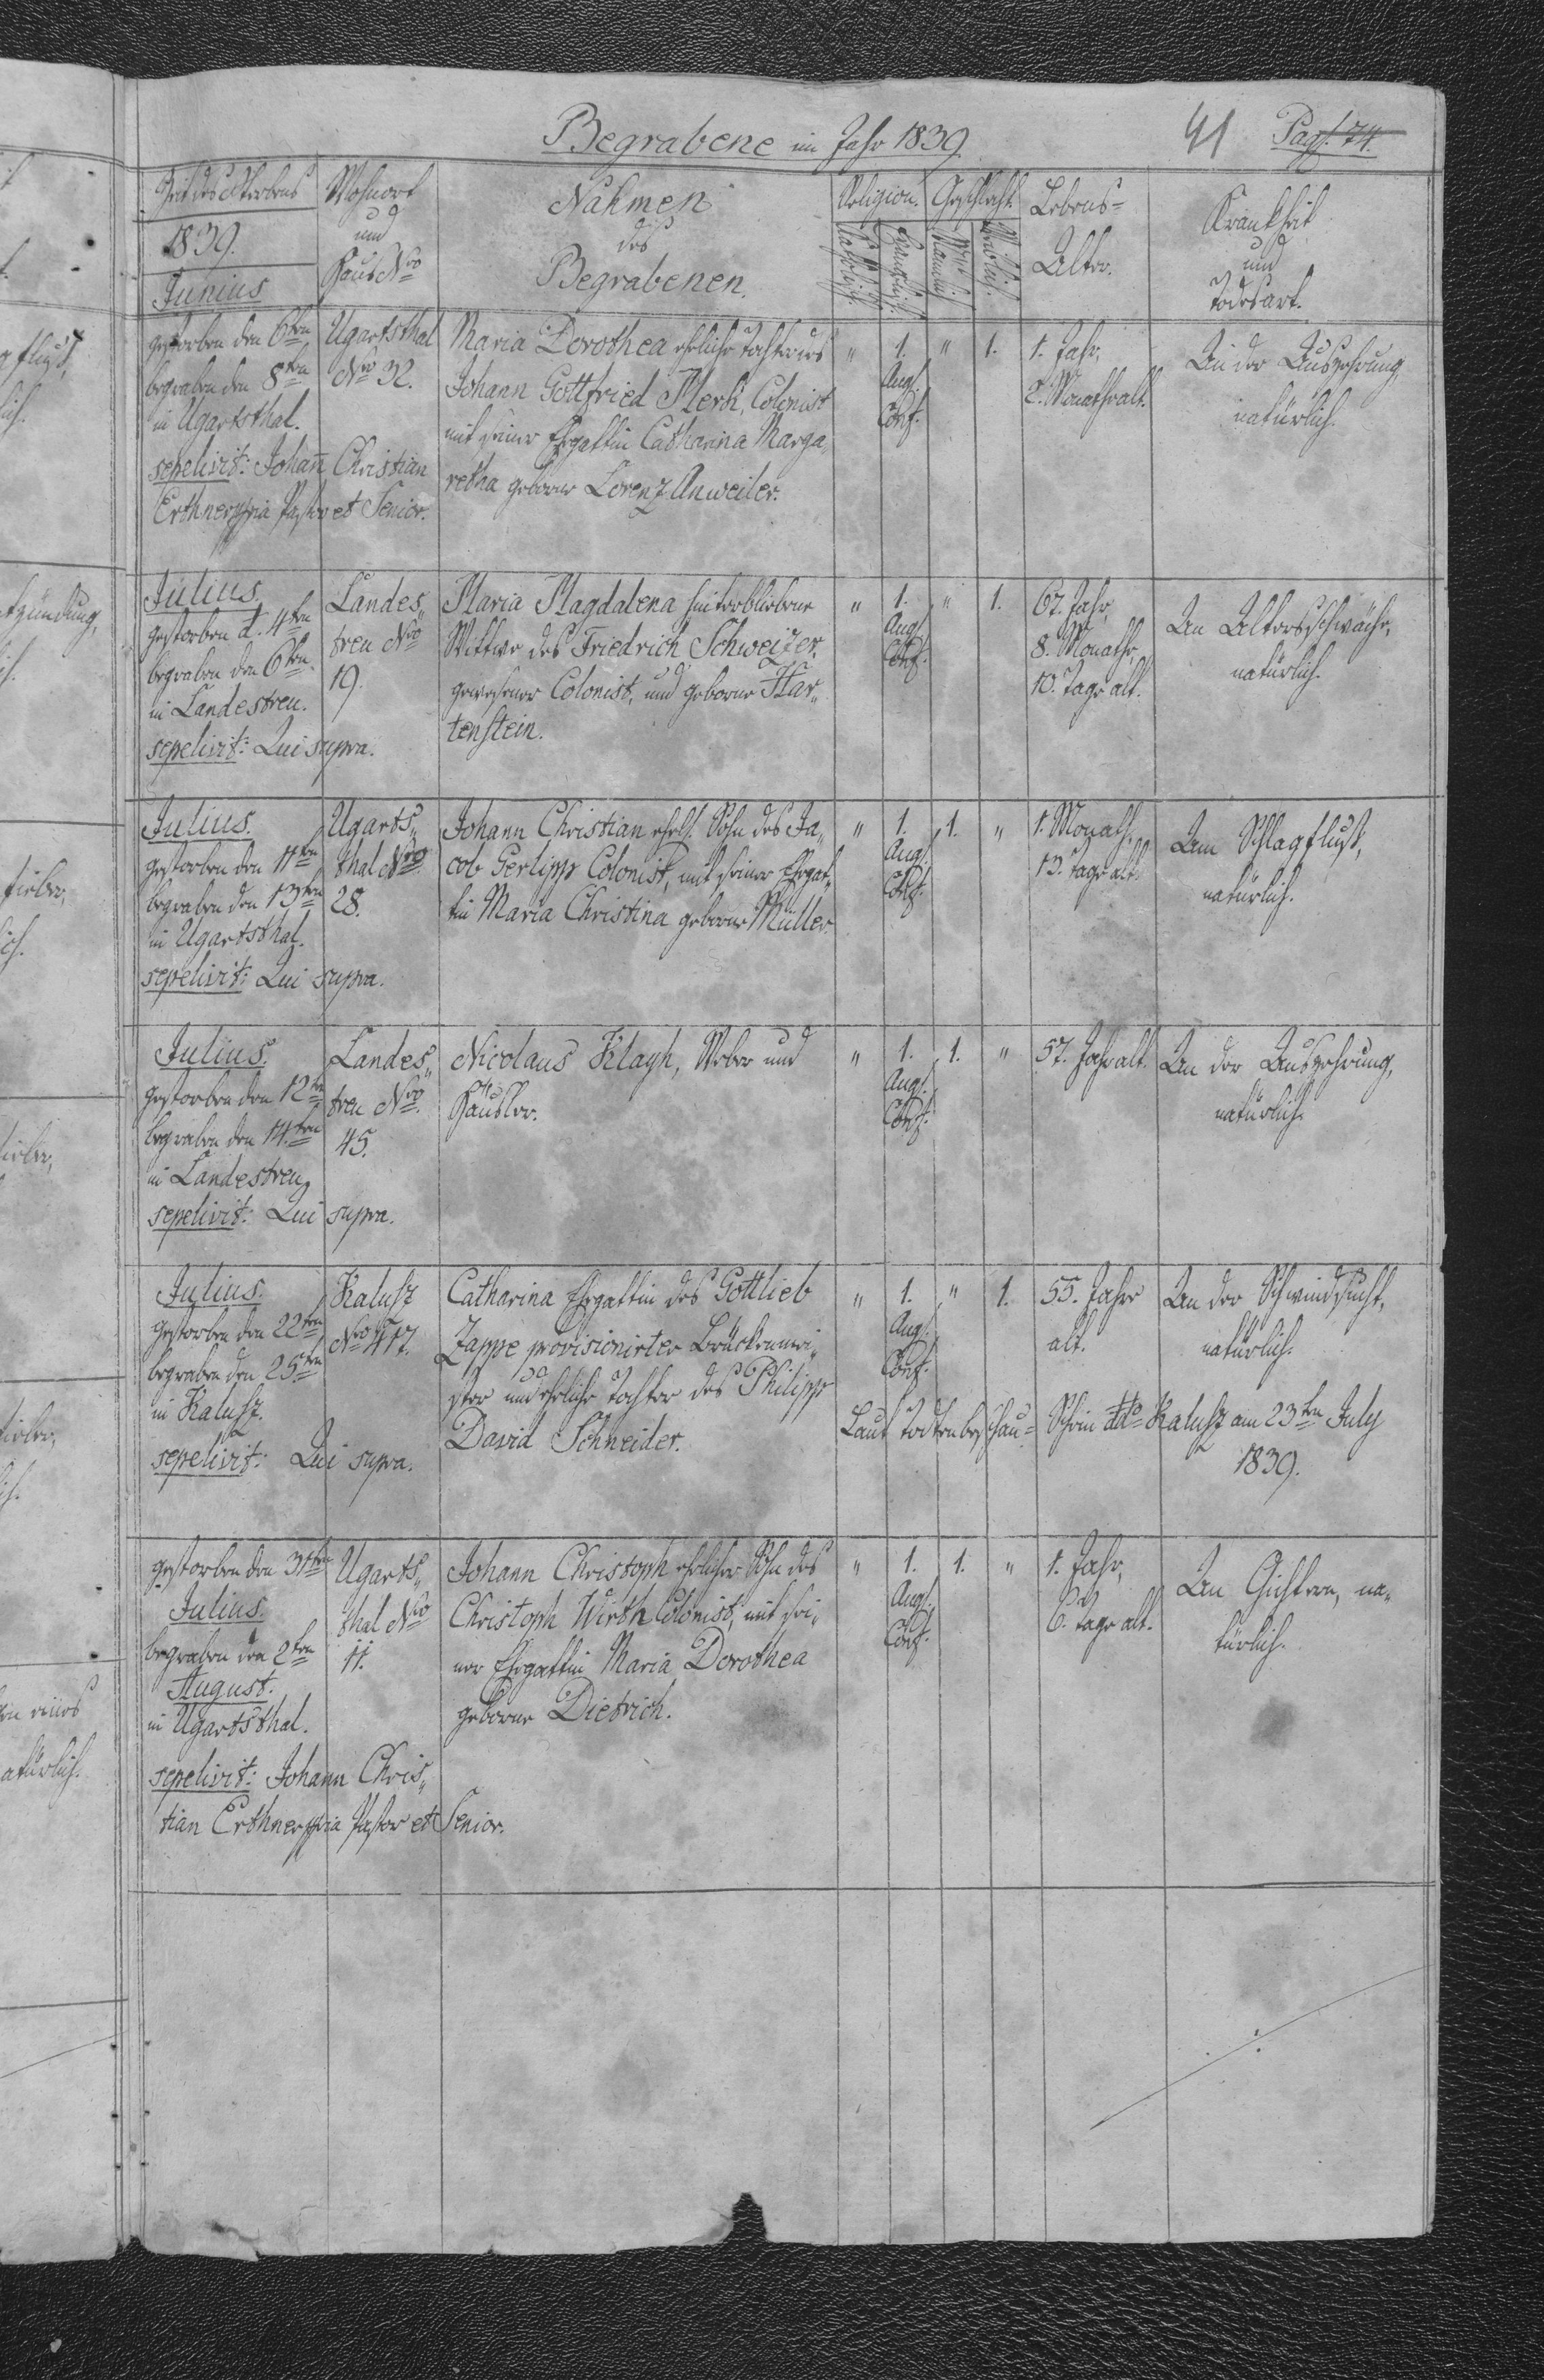 Begrabene im Jahr 1839.
41 Pag. 74.
Zeit des Sterbens
1839.
Junius
Wohnort
und
Haus Nro
Nahmen
des
Begrabenen.
Religion.
Katholisch.
Evangelisch.
Geschlecht.
Männlich.
Weiblich.
Lebens-
Alter.
Krankheit
und
Todesart.
gestorben den 6ten
begraben den 8ten
in Ugartsthal.
sepelivit: Johann Christian
Erthner mpia Pastor et Senior.
Ugartsthal
Nro 32.
Maria Dorothea eheliche Tochter des
Johann Gottfried Merk, Colonist
mit seiner Ehgattin Catharina Marga„
retha geborne Lorenz Anweiler.
„ 1. „ 1.
Augs.
Conf.
1. Jahr,
2. Monath alt.
An der Auszehrung
natürlich.
Julius.
gestorben d. 4ten
begraben den 6ten
in Landestreu.
sepelivit: Qui supra.
Landes„
treu Nro
19.
Maria Magdalena hinterbliebene
Wittwe des Friedrich Schweizer,
gewesener Colonist, und geborne Har„
tenstein.
„ 1. „ 1.
Augs.
Conf.
67. Jahr,
8. Monath,
10. Tage alt.
An Altersschwäche,
natürlich.
Julius.
gestorben den 11ten
begraben den 13ten
in Ugartsthal.
sepelivit: Qui supra.
Ugarts„
thal Nro
28.
Johann Christian ehel. Sohn des Ja„
cob Gerlipp Colonist, mit seiner Ehgat„
tin Maria Christina geborne Müller.
„ 1. 1. „
Augs.
Conf.
1. Monath,
13. Tage alt.
Am Schlagfluß,
natürlich.
Julius.
gestorben den 12ten
begraben den 14ten
in Landestreu,
sepelivit: Qui supra.
Landes„
treu Nro
45.
Nicolaus Klayh, Weber und
Häusler.
„ 1. 1. „
Augs.
Conf.
57. Jahr alt.
An der Auszehrung,
natürlich.
Julius.
gestorben den 22ten
begraben den 25ten
in Kalusz.
sepelivit: Qui supra.
Kalusz
Nro 417.
Catharina Ehgattin des Gottlieb
Zappe provisionirter Brückenmei„
ster und eheliche Tochter des Philipp
David Schneider.
„ 1. „ 1.
Augs.
Conf.
55. Jahre
alt.
An der Schwindsucht,
natürlich.
Laut Todtenbeschau- Schein ddto Kalusz am 23ten July
1839.
gestorben den 31ten
Julius.
begraben den 2ten
August.
in Ugartsthal.
sepelivit: Johann Chris„
tian Erthner mpia Pastor et Senior.
Ugarts„
thal Nro
11.
Johann Christoph ehelicher Sohn des
Christoph Wirth Colonist, mit sei„
ner Ehgattin Maria Dorothea
geborne Dietrich.
„ 1. 1. „
Augs.
Conf.
1. Jahr,
6. Tage alt.
An Gichtern, na„
türlich.